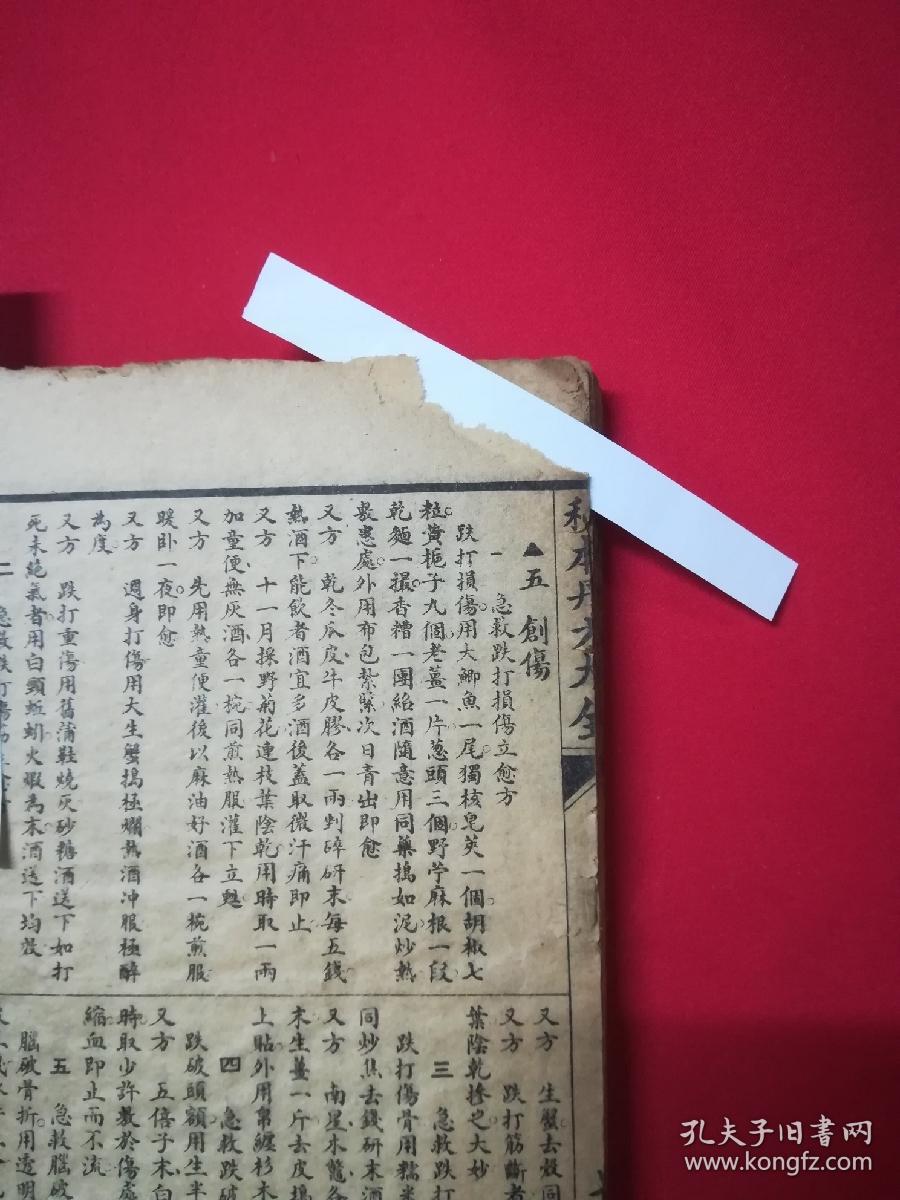 ▲五 創傷
一 急救跌打損傷立愈方
跌打損傷用大鯽魚一尾獨核皂莢一個胡椒七
粒黃梔子九個老薑一片葱頭三個野苧麻根一段
乾麵一撮香糟一團紹酒隨意用同藥搗如泥炒熱
敷患處外用布包紮緊次日青出即愈
又方 乾冬瓜皮牛皮膠各一兩剉碎研末每五錢
熱酒下能飲者酒宜多酒後蓋取微汗痛即止
又方 十一月採野菊花連枝葉陰乾用時取一兩
加童便無灰酒各一椀同煎熱服灌下立甦
又方 先用熱童便灌後以麻油好酒各一椀煎服
暖卧一夜即愈
又方 週身打傷用大生蟹搗極爛熱酒冲服極醉
為度
又方 跌打重傷用舊蒲鞋燒灰砂糖酒送下如打
死未絶氣者用白頸蚯蚓火煅為末酒送下均效
二 急救跌打傷
又方 生蟹去殼同
又方 跌打筋斷者
葉陰乾摻之大妙
三 急救跌打
跌打傷骨用糯米
同炒焦去錢研末酒
又方 南星木鼈各
末生薑一斤去皮搗
上貼外用帛纏杉木
四 急救跌破
跌破頭額用生半
又方 五倍子末白
時取少許敷於傷處
縮血即止而不流
五 急救腦破
腦破骨折用透明
孔夫子旧书网
www.kongfz.com